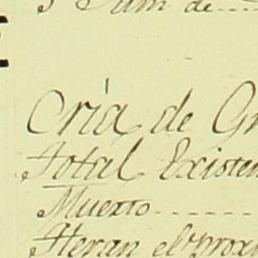 de
Cria de
Total Existen
Muerto
Heran el prox